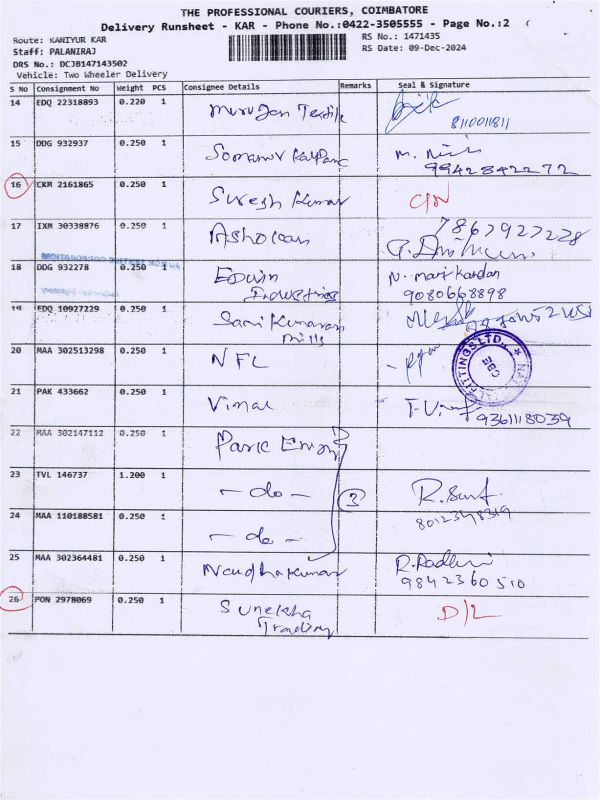 THE PROFESSIONAL COURIERS, COIMBATORE
Delivery Runsheet - KAR - Phone No.:0422-3505555 - Page No.:2
Route: KANIYUR KAR RS No.: 1471435
Staff: PALANIRAJ RS Date: 09-Dec-2024
DRS No.: DCJB147143502
Vehicle: Two Wheeler Delivery
S No Consignment No Weight PCS Consignee Details Remarks Seal & Signature
14 EDQ 22318893 0.220 1 Murugan Textile
8110011811
15 DDG 932937 0.250 1 Somanur
9942842272
16 CKM 2161865 0.250 1 Suresh Kumar
17 IXM 30338876 0.250 1 Ashokan 7867927228
18 DDG 932278 0.250 1 Edwin Industries N. Manikandan
9080668898
19 EDQ 10927229 0.250 1 Sami Kumaran Mills
20 MAA 302513298 0.250 1 NFL
FITTINGS LTD.
CBE
21 PAK 433662 0.250 1 Vimal
9361118039
22 MAA 302147112 0.250 1 Park
23 TVL 146737 1.200 1 -do- 3
24 MAA 110188581 0.250 1 -do-
25 MAA 302364481 0.250 1 Nandhakumar
9842360510
26 PON 2978069 0.250 1 Surekha Trading D/L